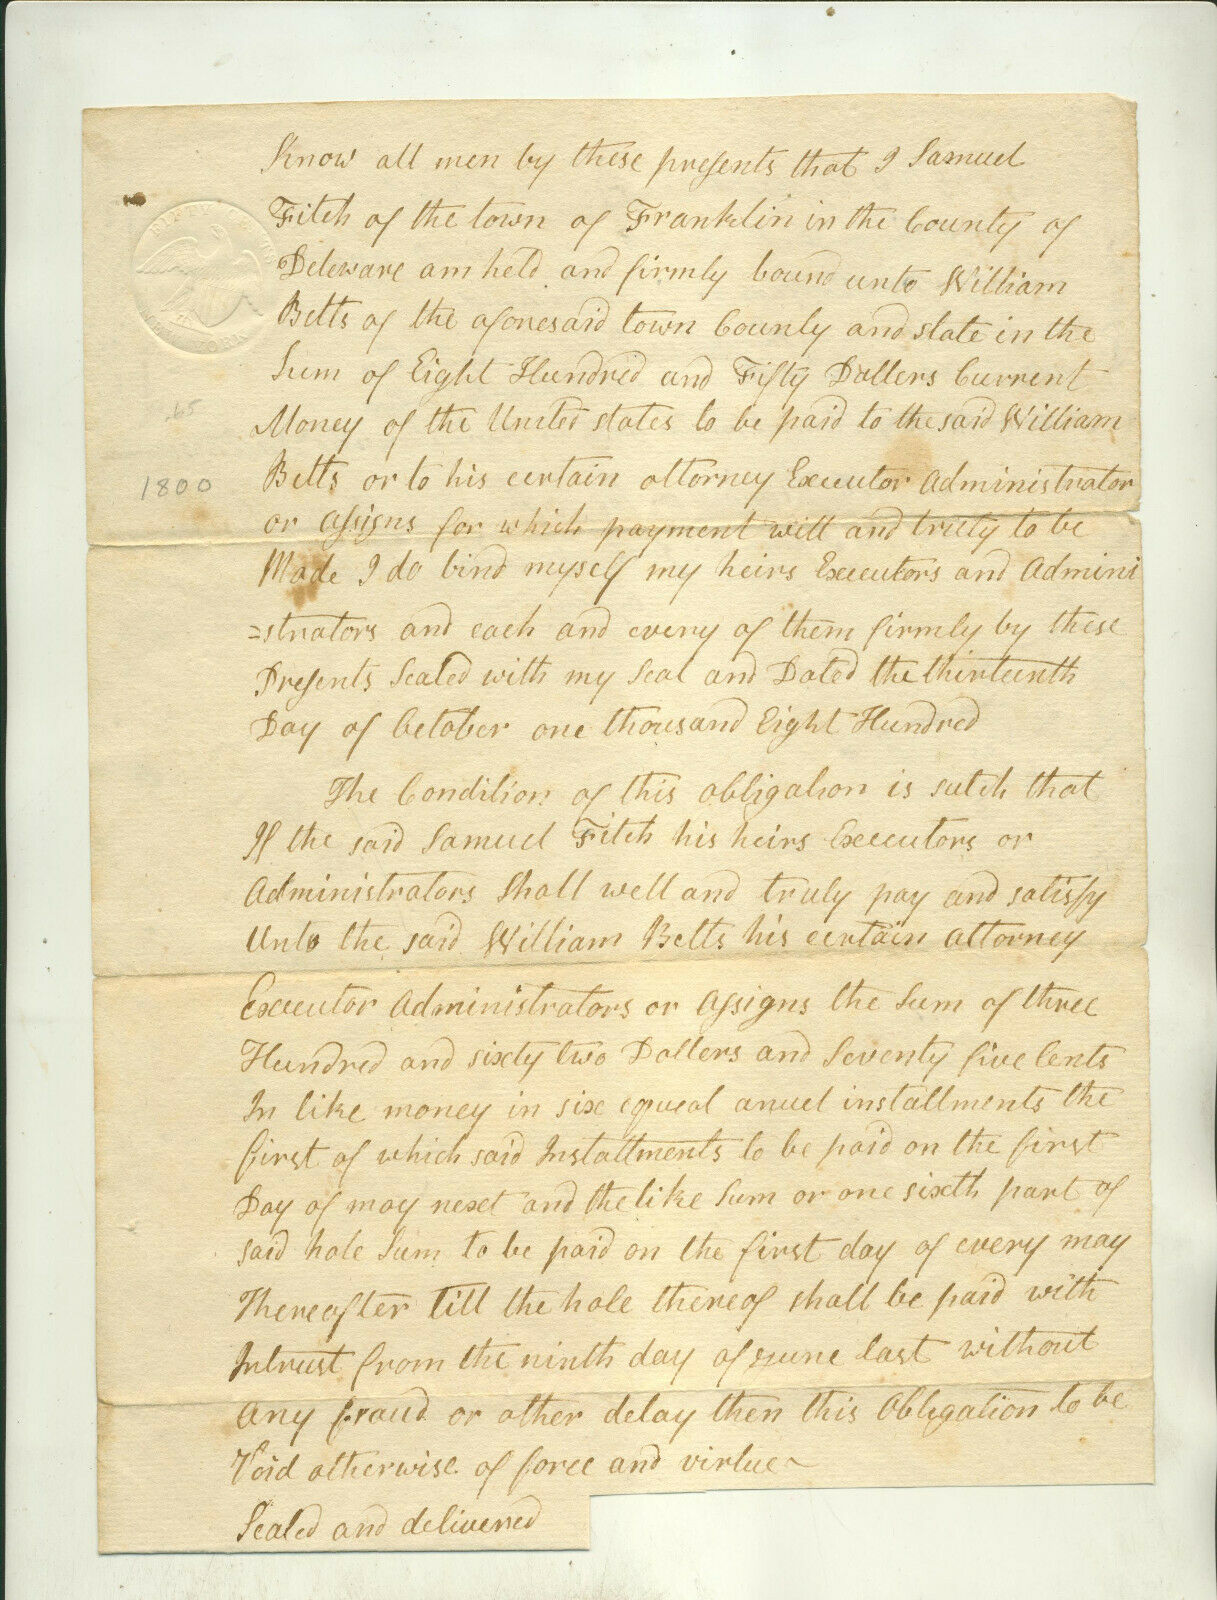 Know all men by these presents that I Samuel
Fitch of the town of Franklin in the County of
Deleware am held and firmly bound unto William
Betts of the aforesaid town County and state in the
Sum of Eight Hundrid and Fifty Dollers Current
Money of the United states to be paid to the said William
Betts or to his certain attorney Executor Administrator
or assigns for which payment well and truly to be
Made I do bind myself my heirs Executors and Admini
=strators and each and every of them firmly by these
Presents Sealed with my Seal and Dated the thirteenth
Day of October one thousand Eight Hundred
The Condition of this obligation is sutch that
If the said Samuel Fitch his heirs Executors or
Administrators Shall well and truly pay and satisfy
Unto the said William Betts his certain attorney
Executor Administrators or assigns the Sum of three
Hundred and sixty two Dollers and Seventy five Cents
In like money in six equeal anuel installments the
first of which said Installments to be paid on the first
Day of may next and the like Sum or one sixth part of
said hole Sum to be paid on the first day of every may
Thereafter till the hole thereof shall be paid with
Intrust from the ninth day of June last without
Any fraud or other delay then this Obligation to be
Void otherwise of force and virtue
Sealed and delivered
65
1800